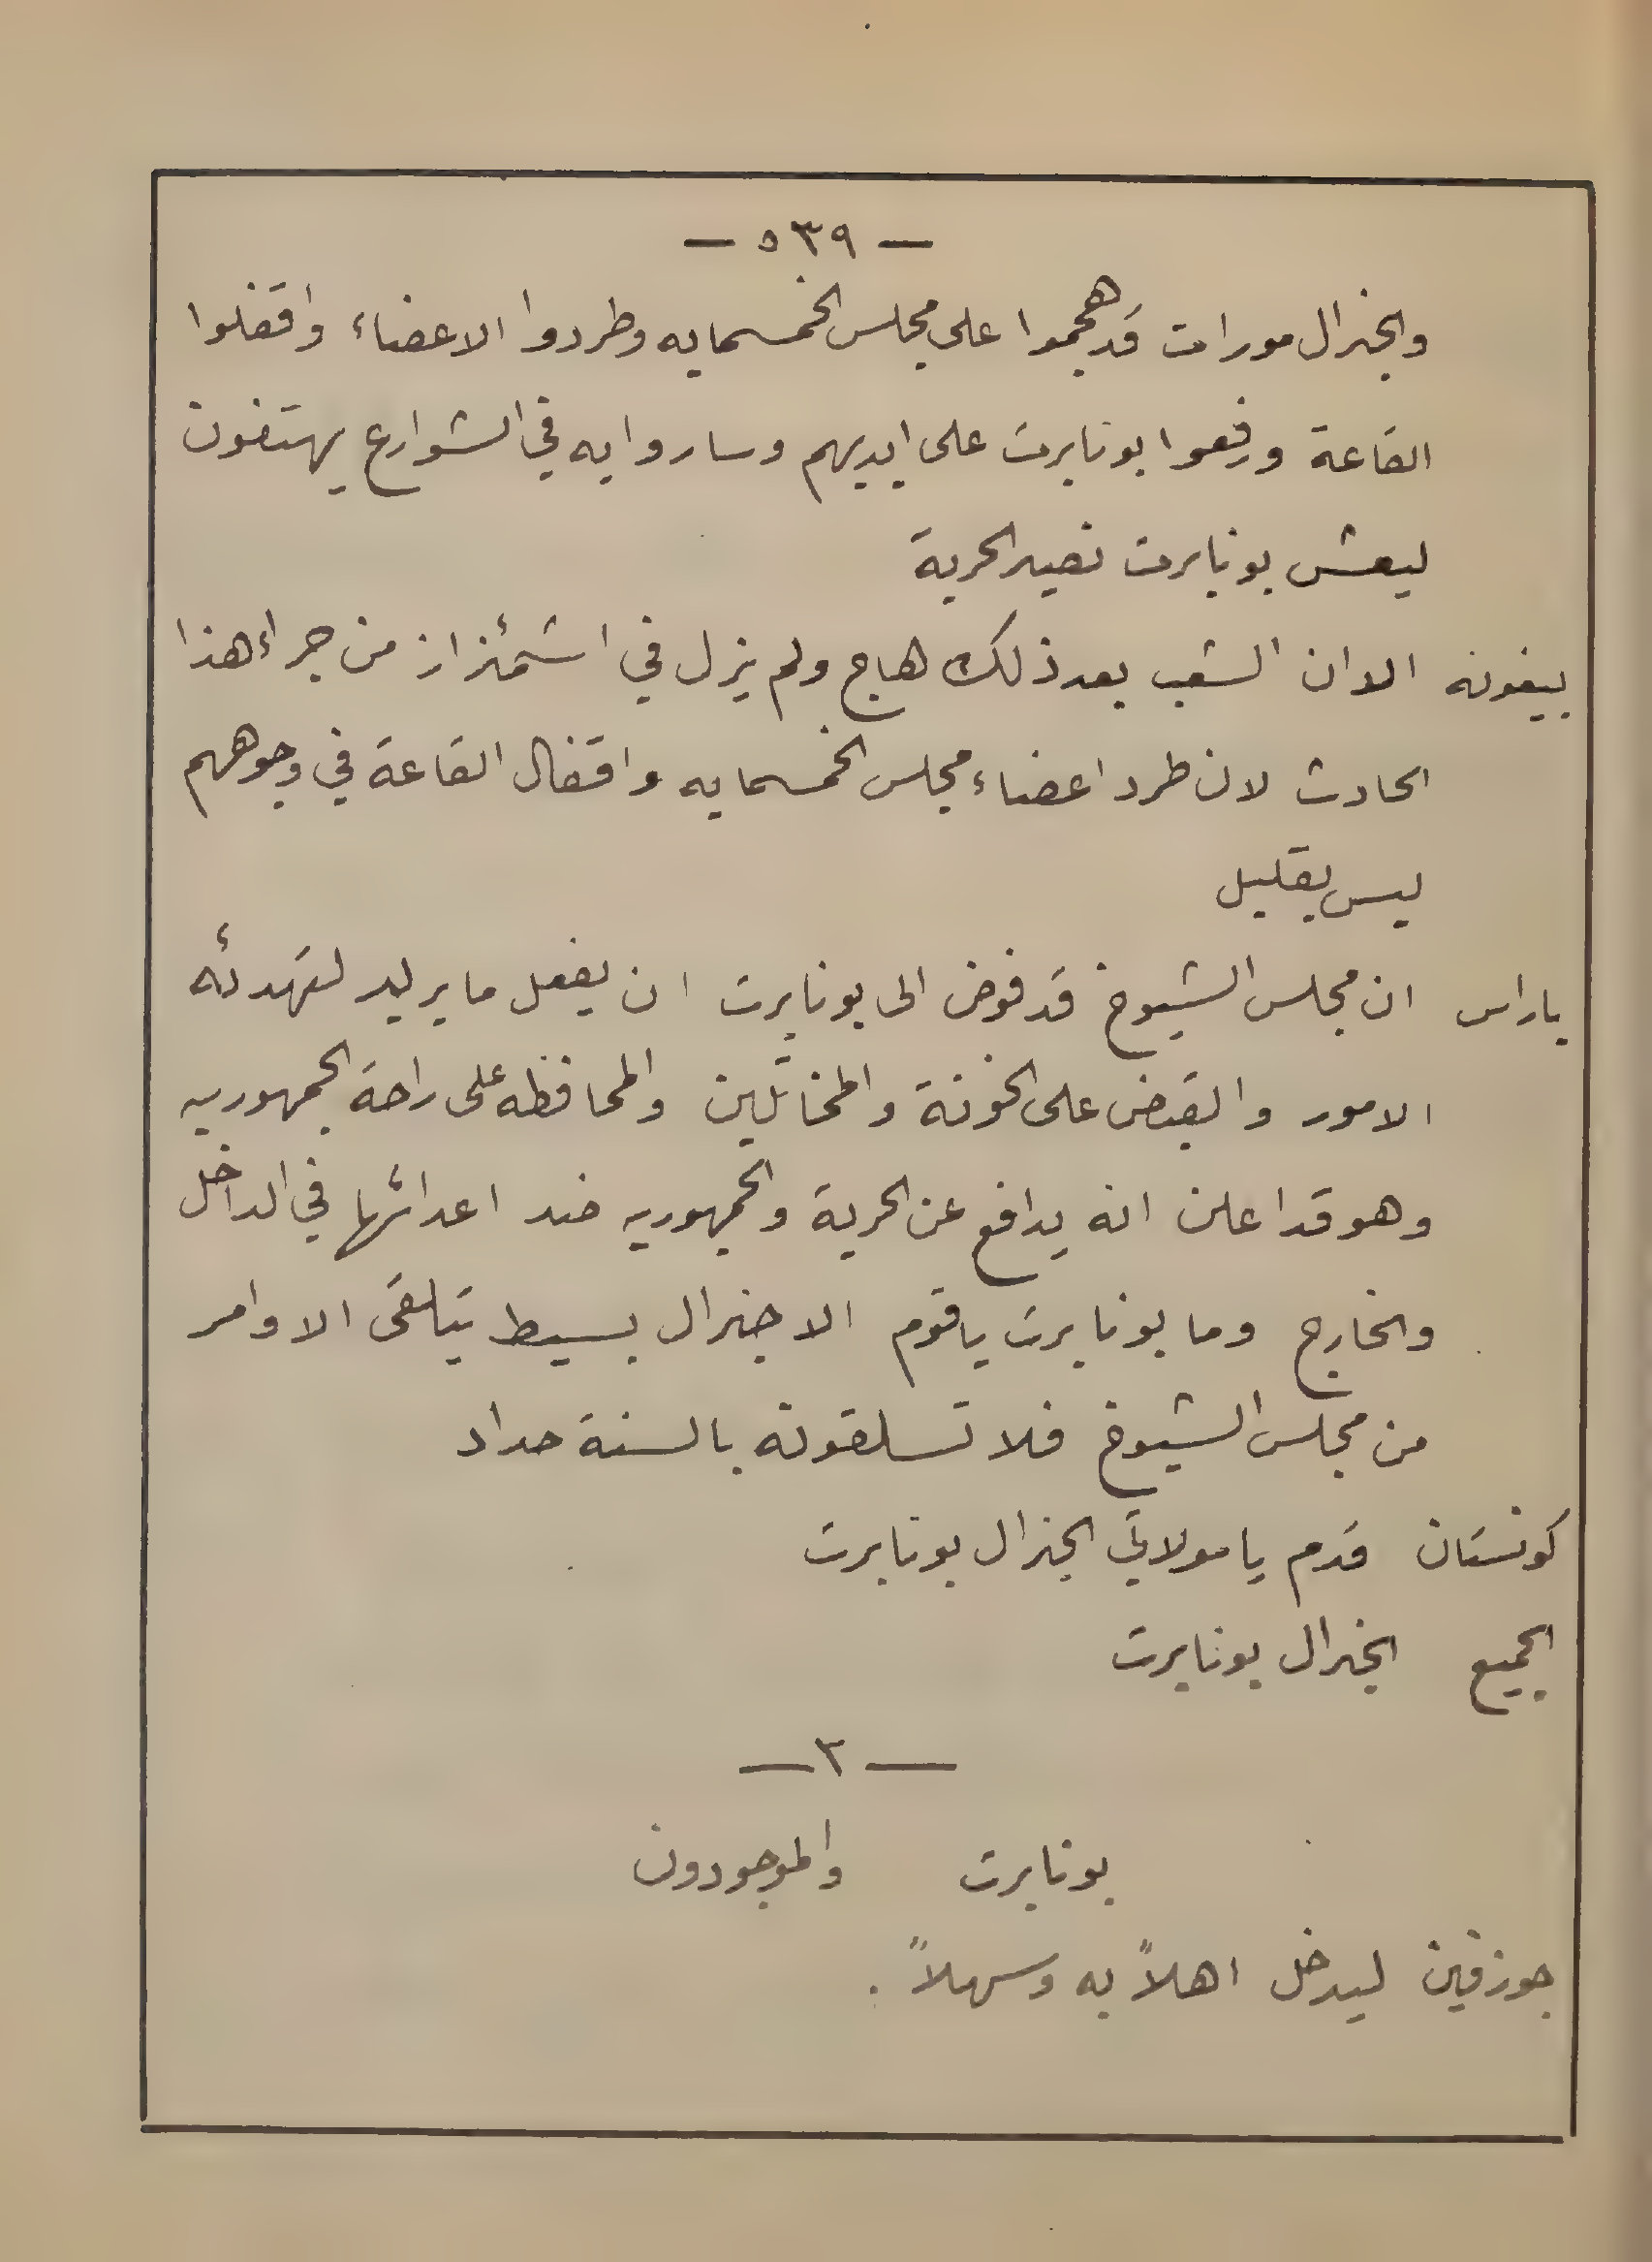 — ٥٣٩ —
والجنرال مورات قد هجموا على مجلس الخمسمايه وطردوا الاعضاء واقفلوا
القاعة ورفعوا بونابرت على ايديهم وساروا به في الشوارع يهتفون
ليعش بونابرت نصير الحرية
بيغونه الا ان الشعب بعد ذلك هاج ولم يزل في اشمئزاز من جراء هذا
الحادث لان طرد اعضاء مجلس الخمسمايه واقفال القاعة في وجوههم
ليس بقليل
باراس ان مجلس الشيوخ قد فوض الى بونابرت ان يفعل ما يريد لتهدئه
الامور والقبض على الخونة والمخاتلين والمحافظه على راحة الجمهوريه
وهو قد اعلن انه يدافع عن الحرية والجمهوريه ضد اعدائها في الداخل
والخارج وما بونابرت يا قوم الا جنرال بسيط يتلقى الاوامر
من مجلس الشيوخ فلا تسلقونه بالسنة حداد
كونستان قدم يا مولاتي الجنرال بونابرت
الجميع الجنرال بونابرت
— ٣ —
بونابرت والموجودون
جوزفين ليدخل اهلاً به وسهلاً .